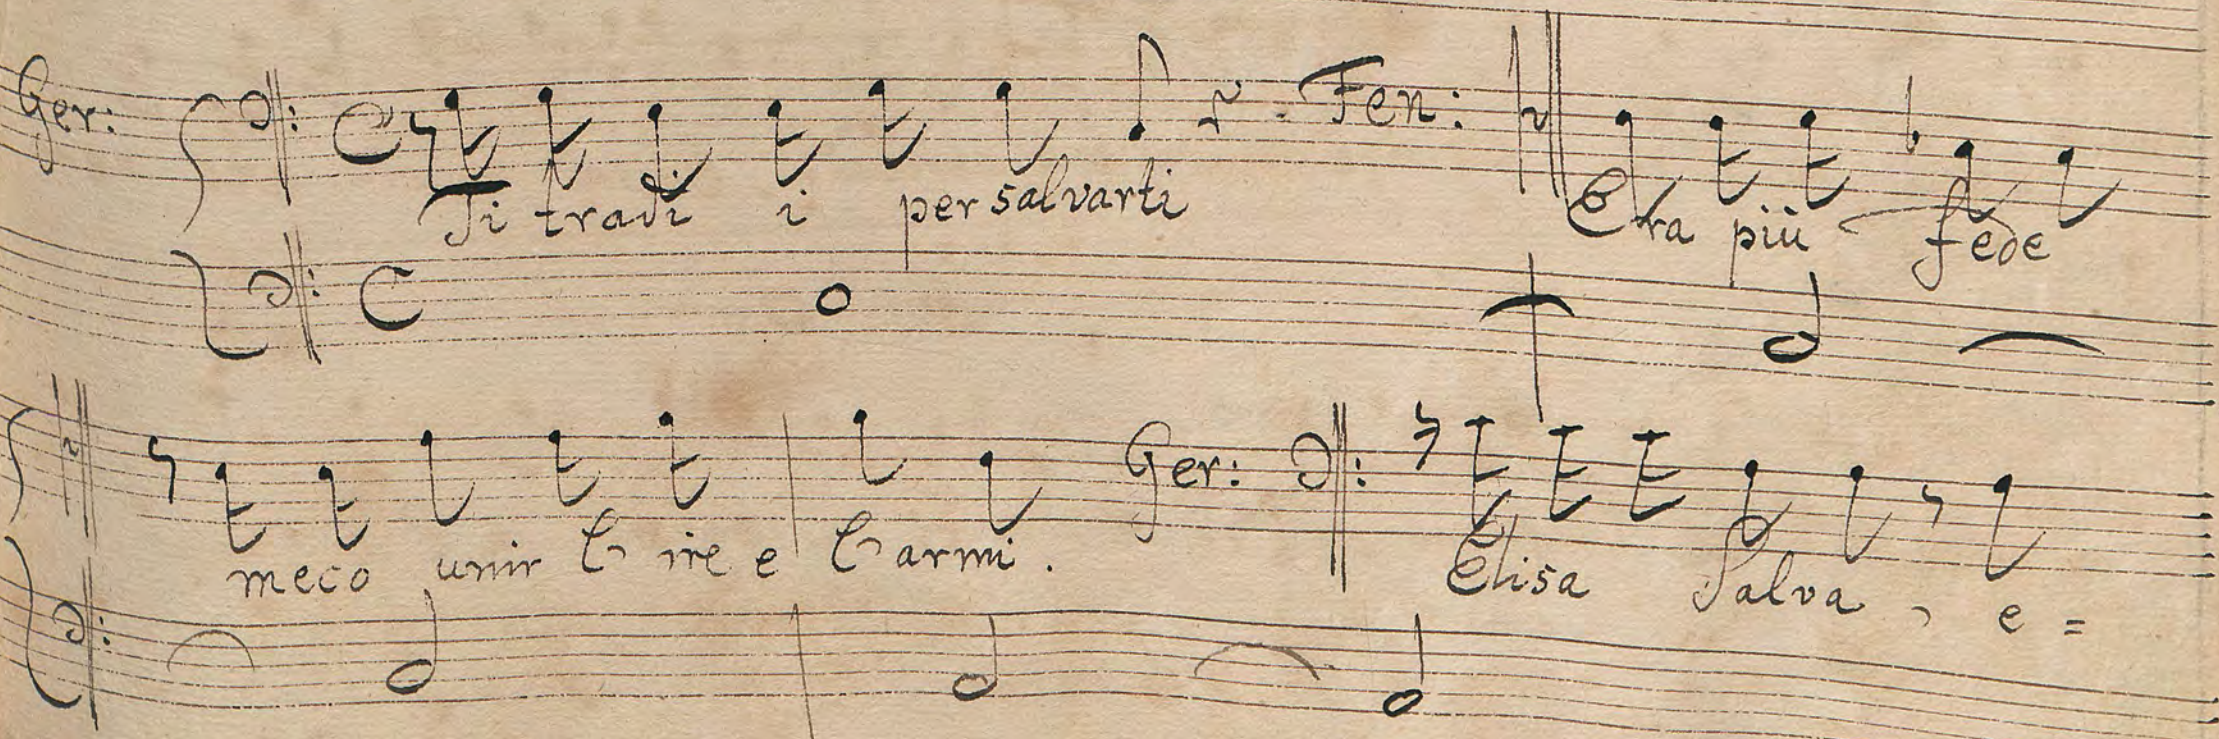 Ger: Ti tradi i per salvarti Fen: Era più fede
meco unir l' ire e l' armi. Ger: Elisa Salva, e =